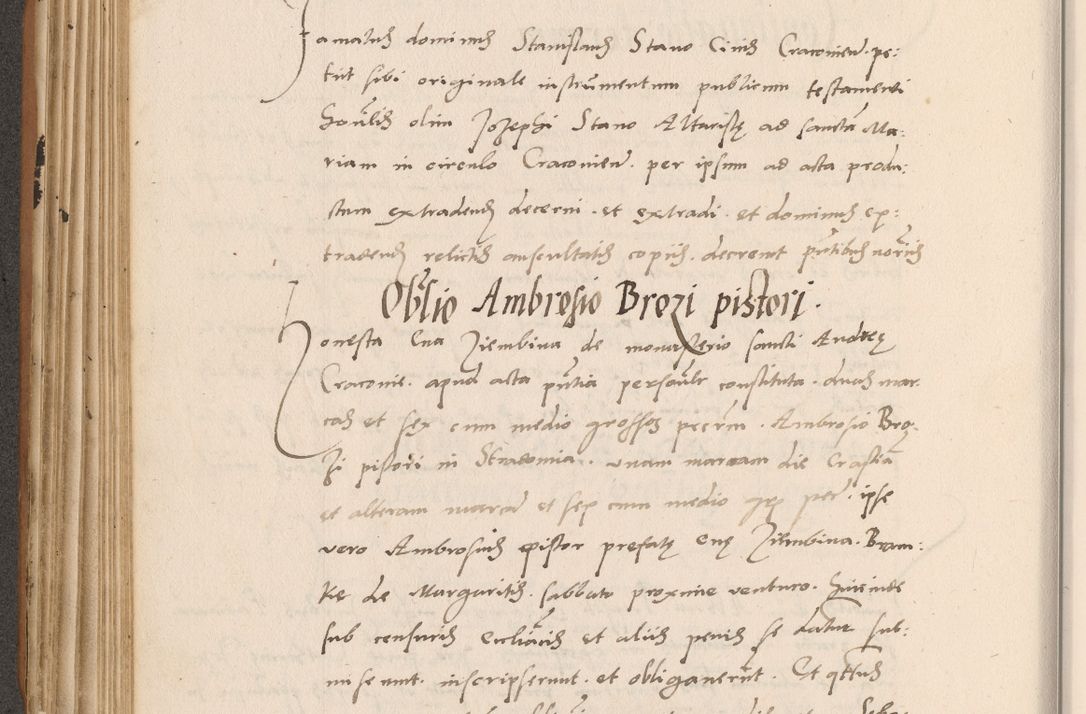 Famatus dominus Stanislaus Stano Civis Cracovien. pe:
tiit sibi originale instrumentum publicum testamenti
honlis olim Jozephi Stano Altaristę ad sanctā Ma:
riam in circulo Cracovien. per ipsum ad acta produ:
ctum extradendū decerni. et extradi. et dominus ex:
tradendū relictis auscultatis copiis. decrevit pntibus
Oblio Ambrosio Brozi pistori.
onesta Eva Ziembina de monasterio sancti Andreę
Cracovie. apud acta pntia personlr constituta. duas mar
cas et sex cum medio grossos pecun. Ambrosio Bro:
zi pistori in Stracomia. unam marcam die Crastīa
et alteram marcā et sex cum medio per. ipse
vero Ambrosius pistor prefatę Evę Ziembina.
de Margaritis. sabbato proxime venturo.
sub censuris ecclīacis et aliis penis se sub:
miserunt. inscripserunt. et obligaverūt. Et